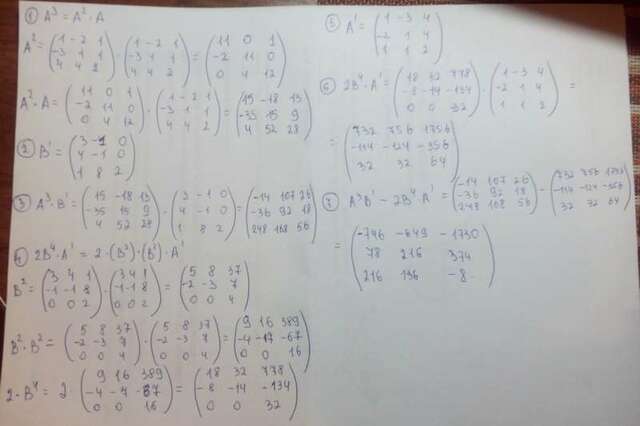 ① A³ = A²·A
A² = (1 -2 1 / -3 1 1 / 4 4 2) · (1 -2 1 / -3 1 1 / 4 4 2) = (11 0 1 / -2 11 0 / 0 4 12)
A²·A = (11 0 1 / -2 11 0 / 0 4 12) · (1 -2 1 / -3 1 1 / 4 4 2) = (15 -18 13 / -35 15 9 / 4 52 28)
② B' = (3 -1 0 / 4 -1 0 / 1 8 2)
③ A³·B' = (15 -18 13 / -35 15 9 / 4 52 28) · (3 -1 0 / 4 -1 0 / 1 8 2) = (-14 107 26 / -36 92 18 / 248 168 56)
④ 2B⁴·A' = 2·(B²)·(B²)·A'
B² = (3 4 1 / -1 -1 8 / 0 0 2) · (3 4 1 / -1 -1 8 / 0 0 2) = (5 8 37 / -2 -3 7 / 0 0 4)
B²·B² = (5 8 37 / -2 -3 7 / 0 0 4) · (5 8 37 / -2 -3 7 / 0 0 4) = (9 16 389 / -4 -17 -67 / 0 0 16)
2·B⁴ = 2·(9 16 389 / -4 -7 -67 / 0 0 16) = (18 32 778 / -8 -14 -134 / 0 0 32)
⑤ A' = (1 -3 4 / -2 1 4 / 1 1 2)
⑥ 2B⁴·A' = (18 32 778 / -8 -14 -134 / 0 0 32) · (1 -3 4 / -2 1 4 / 1 1 2) =
= (732 756 1756 / -114 -124 -356 / 32 32 64)
⑦ A³B' - 2B⁴·A' = (-14 107 26 / -36 92 18 / 248 168 56) - (732 756 1756 / -114 -124 -356 / 32 32 64)
= (-746 -649 -1730 / 78 216 374 / 216 136 -8)